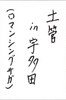 土管
in宇多田
(ロマンシングサガ)